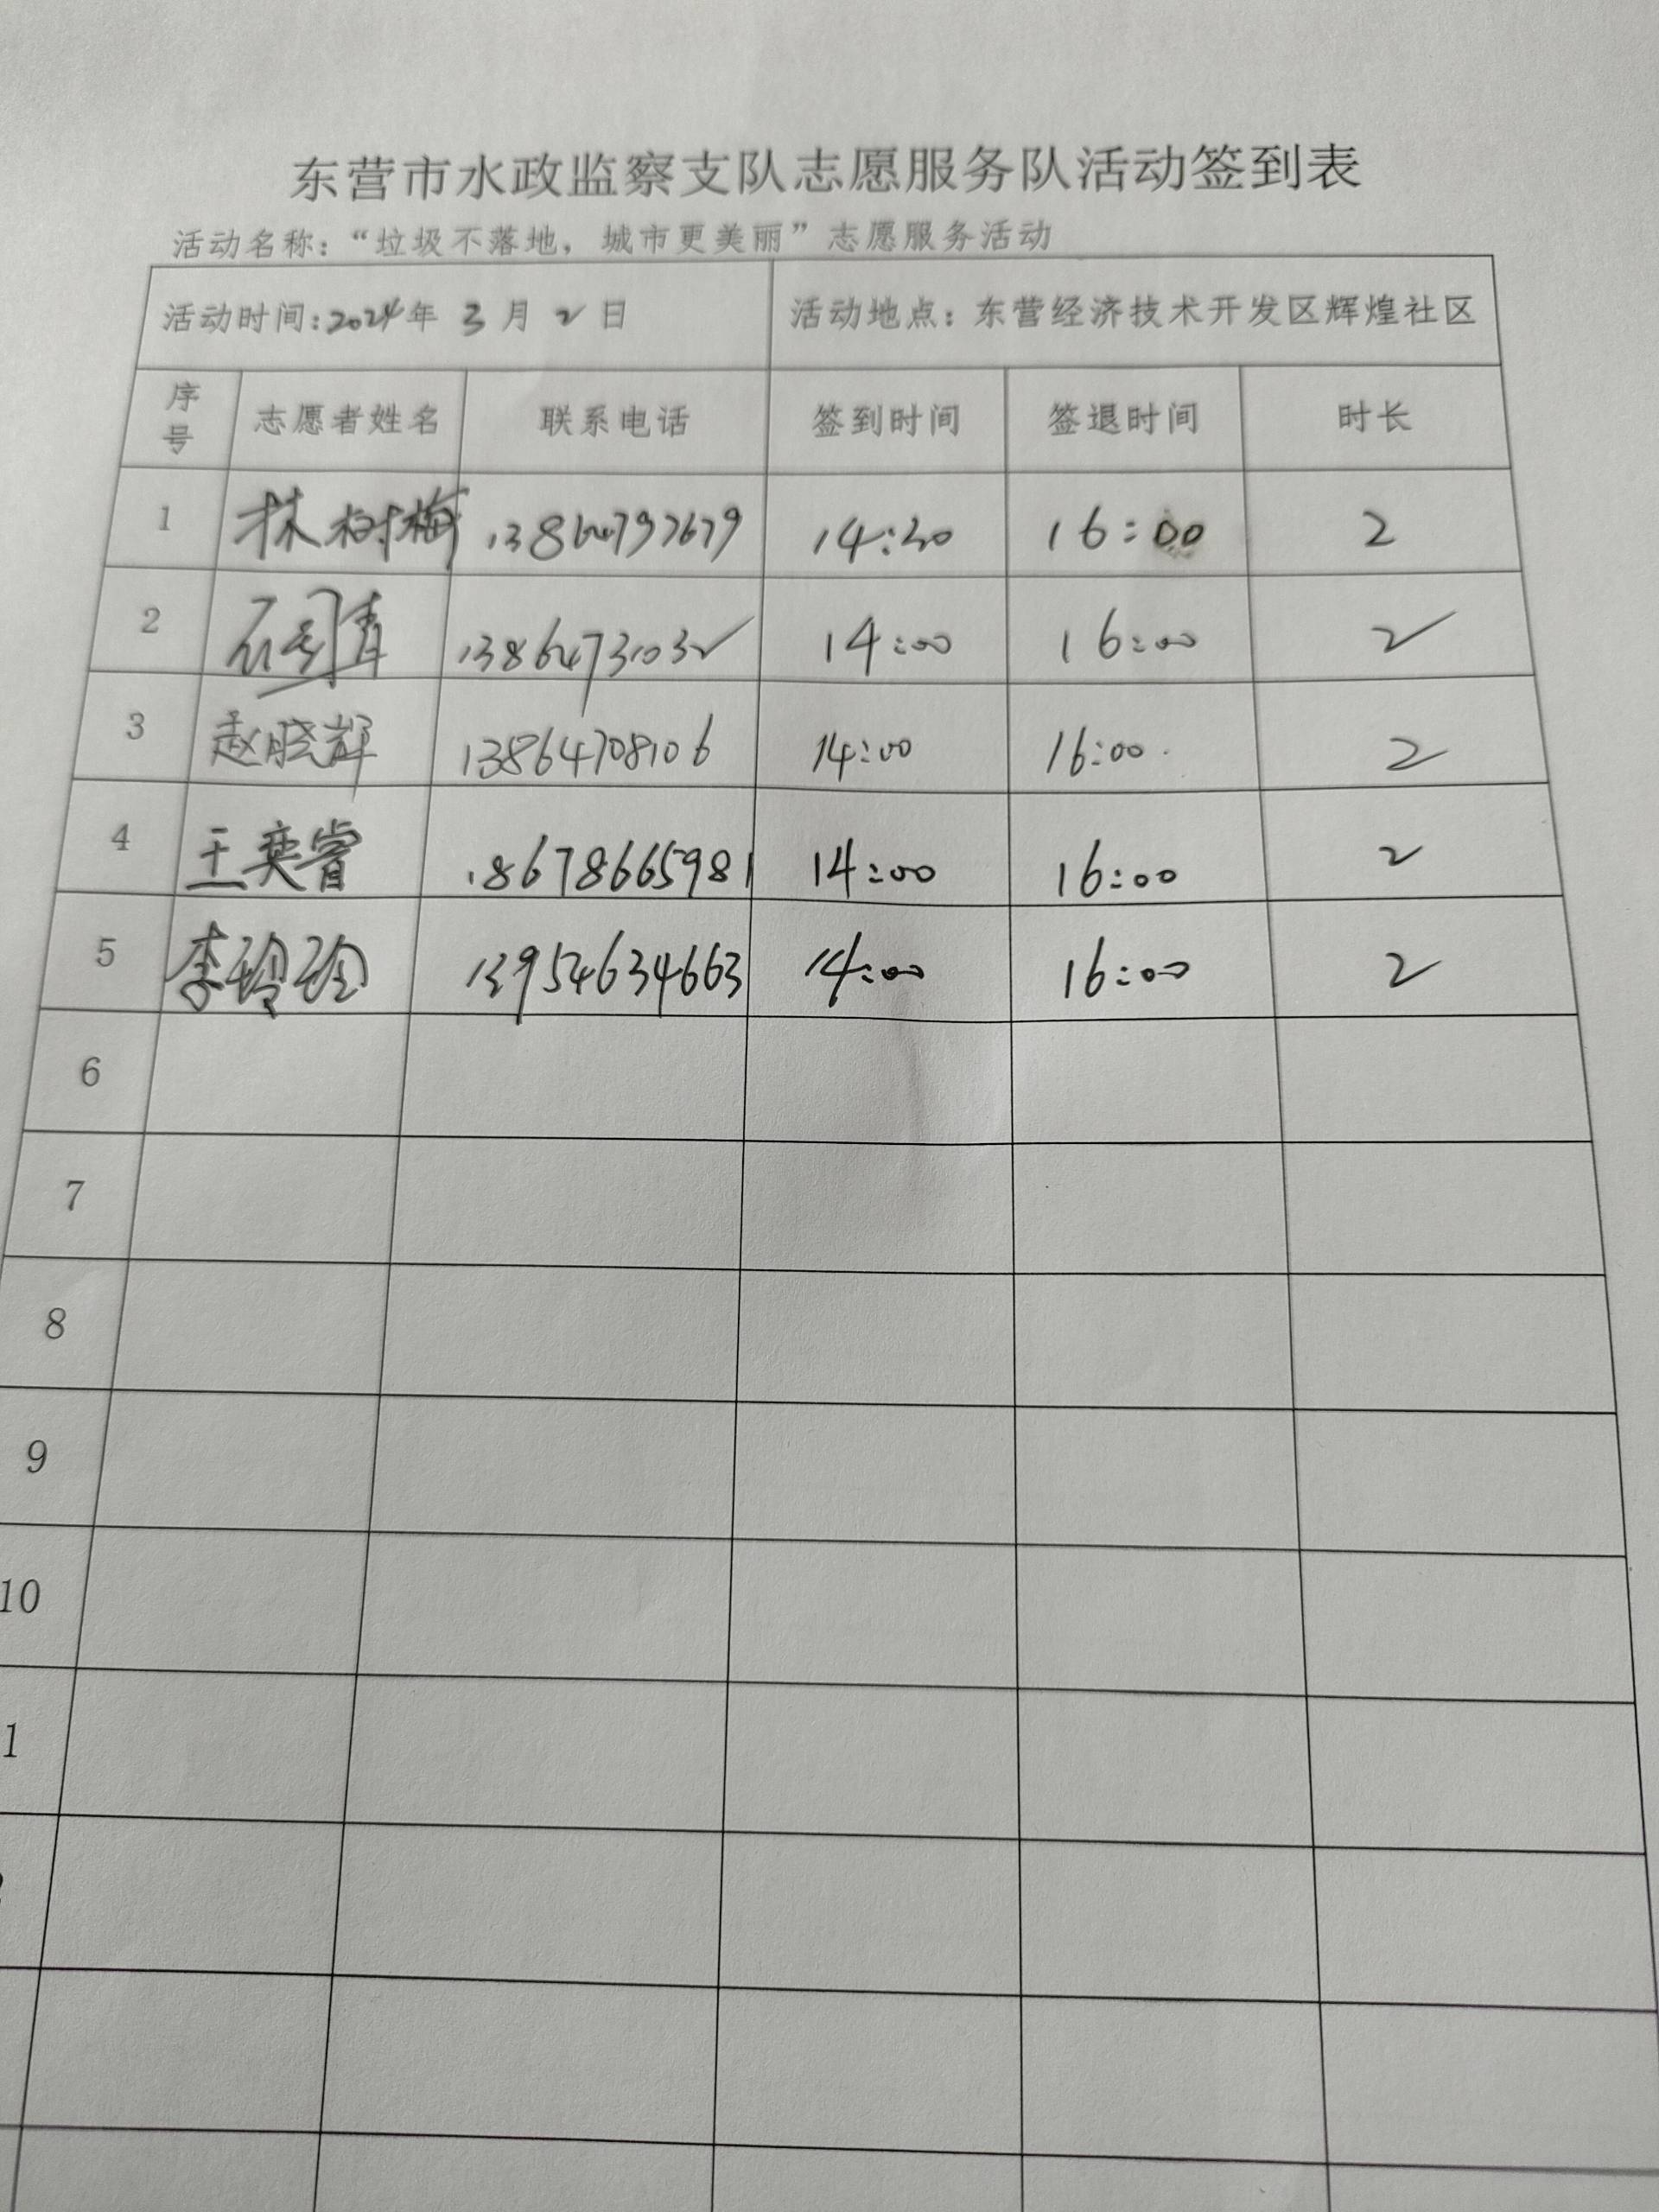 东营市水政监察支队志愿服务队活动签到表
活动名称：“垃圾不落地，城市更美丽”志愿服务活动
活动时间：2024年 3 月 2 日 活动地点：东营经济技术开发区辉煌社区
序号 志愿者姓名 联系电话 签到时间 签退时间 时长
1 林树梅 16:00 2
2 13864731032 14:00 16:00 2
3 赵晓辉 13864708106 14:00 16:00 2
4 王奕睿 18678665981 14:00 16:00 2
5 李玲玲 13954634663 14:00 16:00 2
6
7
8
9
10
1